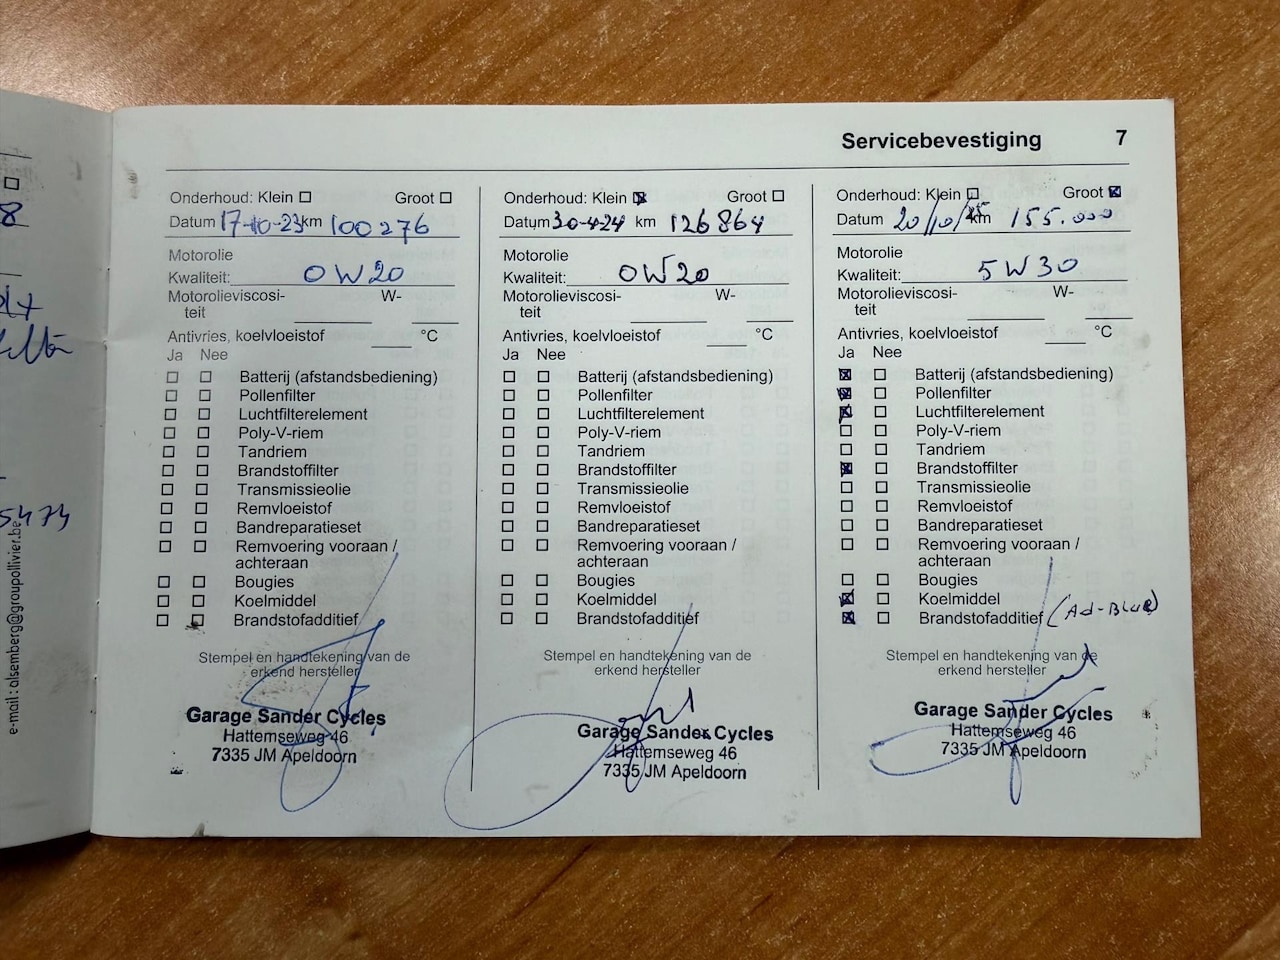 8
5474
e-mail: alsemberg@groupollivier.be
Servicebevestiging 7
Onderhoud: Klein ☐ Groot ☐
Datum 17-10-23 km 100276
Motorolie
Kwaliteit: 0W20
Motorolieviscosi- W-
teit
Antivries, koelvloeistof °C
Ja Nee
☐ ☐ Batterij (afstandsbediening)
☐ ☐ Pollenfilter
☐ ☐ Luchtfilterelement
☐ ☐ Poly-V-riem
☐ ☐ Tandriem
☐ ☐ Brandstoffilter
☐ ☐ Transmissieolie
☐ ☐ Remvloeistof
☐ ☐ Bandreparatieset
☐ ☐ Remvoering vooraan /
achteraan
☐ ☐ Bougies
☐ ☐ Koelmiddel
☐ ☐ Brandstofadditief
Stempel en handtekening van de
erkend hersteller
Garage Sander Cycles
Hattemseweg 46
7335 JM Apeldoorn
Onderhoud: Klein ☒ Groot ☐
Datum 30-4-24 km 126864
Motorolie
Kwaliteit: 0W20
Motorolieviscosi- W-
teit
Antivries, koelvloeistof °C
Ja Nee
☐ ☐ Batterij (afstandsbediening)
☐ ☐ Pollenfilter
☐ ☐ Luchtfilterelement
☐ ☐ Poly-V-riem
☐ ☐ Tandriem
☐ ☐ Brandstoffilter
☐ ☐ Transmissieolie
☐ ☐ Remvloeistof
☐ ☐ Bandreparatieset
☐ ☐ Remvoering vooraan /
achteraan
☐ ☐ Bougies
☐ ☐ Koelmiddel
☐ ☐ Brandstofadditief
Stempel en handtekening van de
erkend hersteller
Garage Sander Cycles
Hattemseweg 46
7335 JM Apeldoorn
Onderhoud: Klein ☐ Groot ☒
Datum 20/10/25 km 155.000
Motorolie
Kwaliteit: 5W30
Motorolieviscosi- W-
teit
Antivries, koelvloeistof °C
Ja Nee
☒ ☐ Batterij (afstandsbediening)
☒ ☐ Pollenfilter
☒ ☐ Luchtfilterelement
☐ ☐ Poly-V-riem
☐ ☐ Tandriem
☒ ☐ Brandstoffilter
☐ ☐ Transmissieolie
☐ ☐ Remvloeistof
☐ ☐ Bandreparatieset
☐ ☐ Remvoering vooraan /
achteraan
☐ ☐ Bougies
☒ ☐ Koelmiddel
☒ ☐ Brandstofadditief (Ad-Blue)
Stempel en handtekening van de
erkend hersteller
Garage Sander Cycles
Hattemseweg 46
7335 JM Apeldoorn